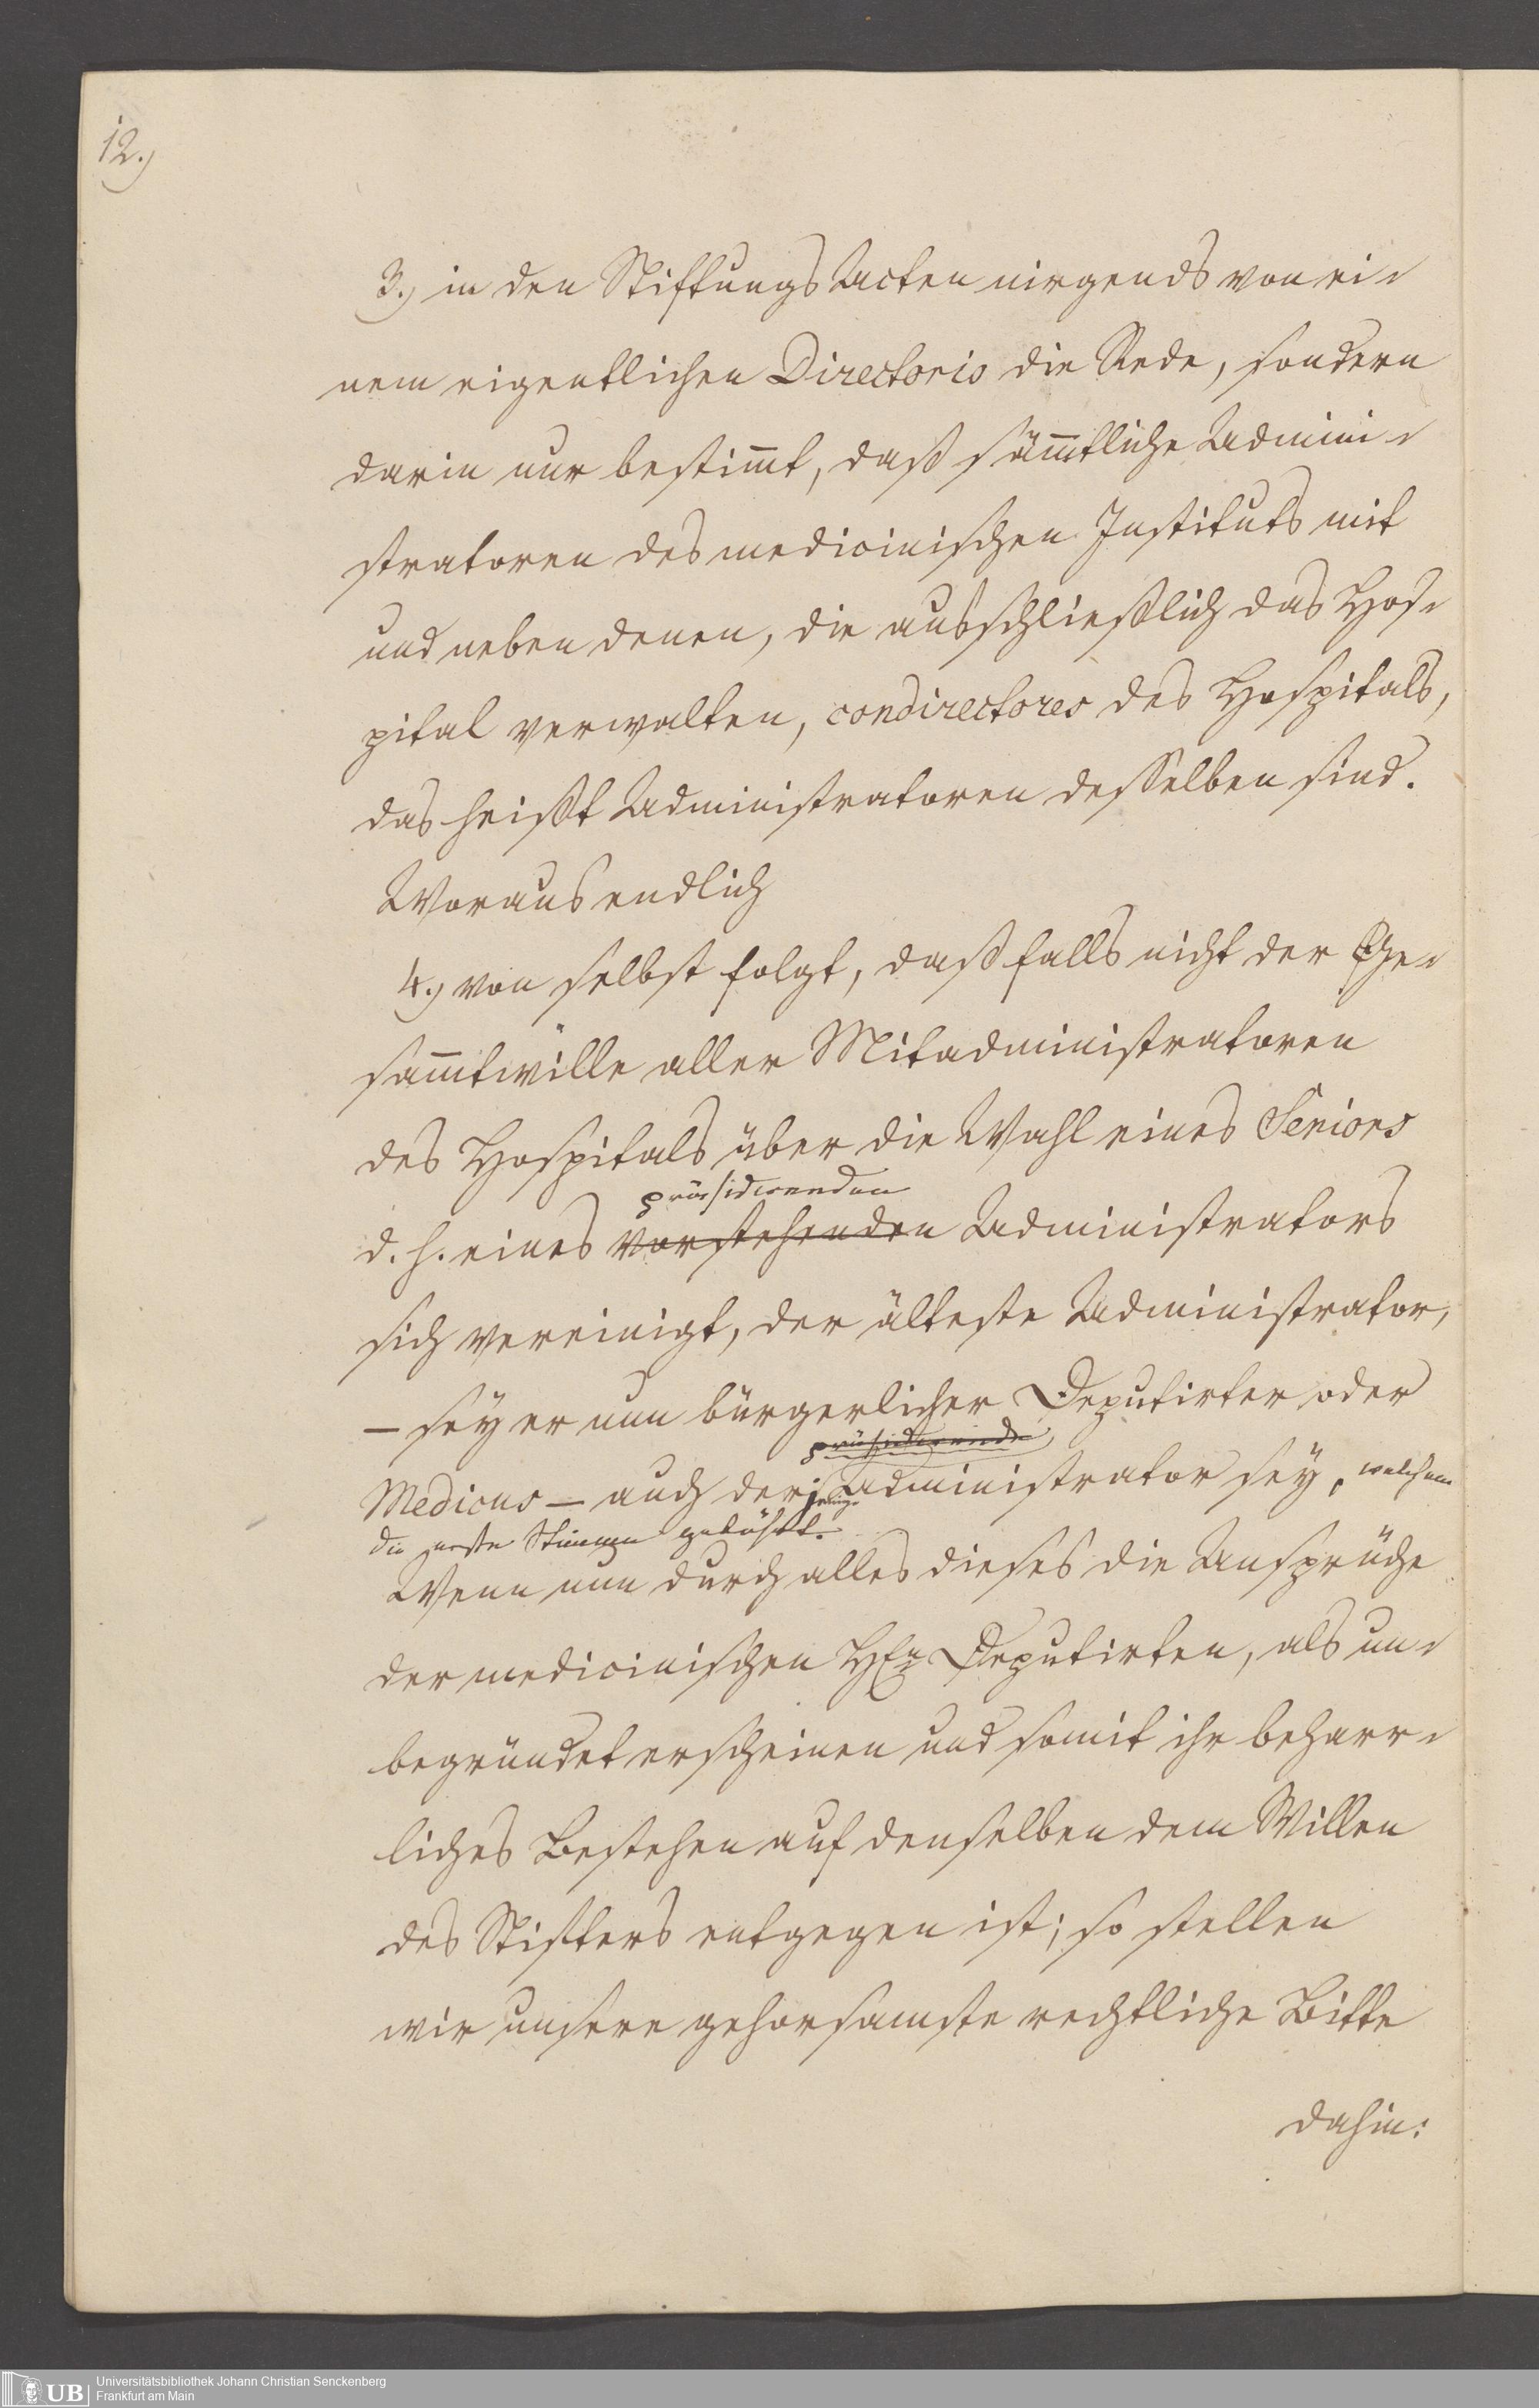 12.)
3.) in den Stiftungs Acten nirgends von ei-
nem eigentlichen Directorio die Rede, sondern
darin nur bestim̅t, daß säm̅tliche Admini-
stratoren des medicinischen Instituts mit
und neben denen, die ausschließlich das Hos-
pital verwalten, condirectores des Hospitals,
das heißt Administratoren desselben sind.
Woraus endlich
4.) von selbst folgt, daß falls nicht der Ge-
sam̅twille aller Mitadministratoren
des Hospitals über die Wahl eines Seniors
präsidirenden
d. h. eines vorstehenden Administrators
sich vereinigt, der älteste Administrator,
– sey er nun bürgerlicher Deputirter oder
präsidirende
Medicus – auch derjenige Administrator sey, welchem
die erste Stimme gebührt.
Wenn nun durch alles dieses die Ansprüche
der medicinischen HEn Deputirten, als un-
begründet erscheinen und somit ihr beharr-
liches Bestehen auf denselben dem Willen
des Stifters entgegen ist; so stellen
wir unsere gehorsamste rechtliche Bitte
dahin:
UB
Universitätsbibliothek Johann Christian Senckenberg
Frankfurt am Main